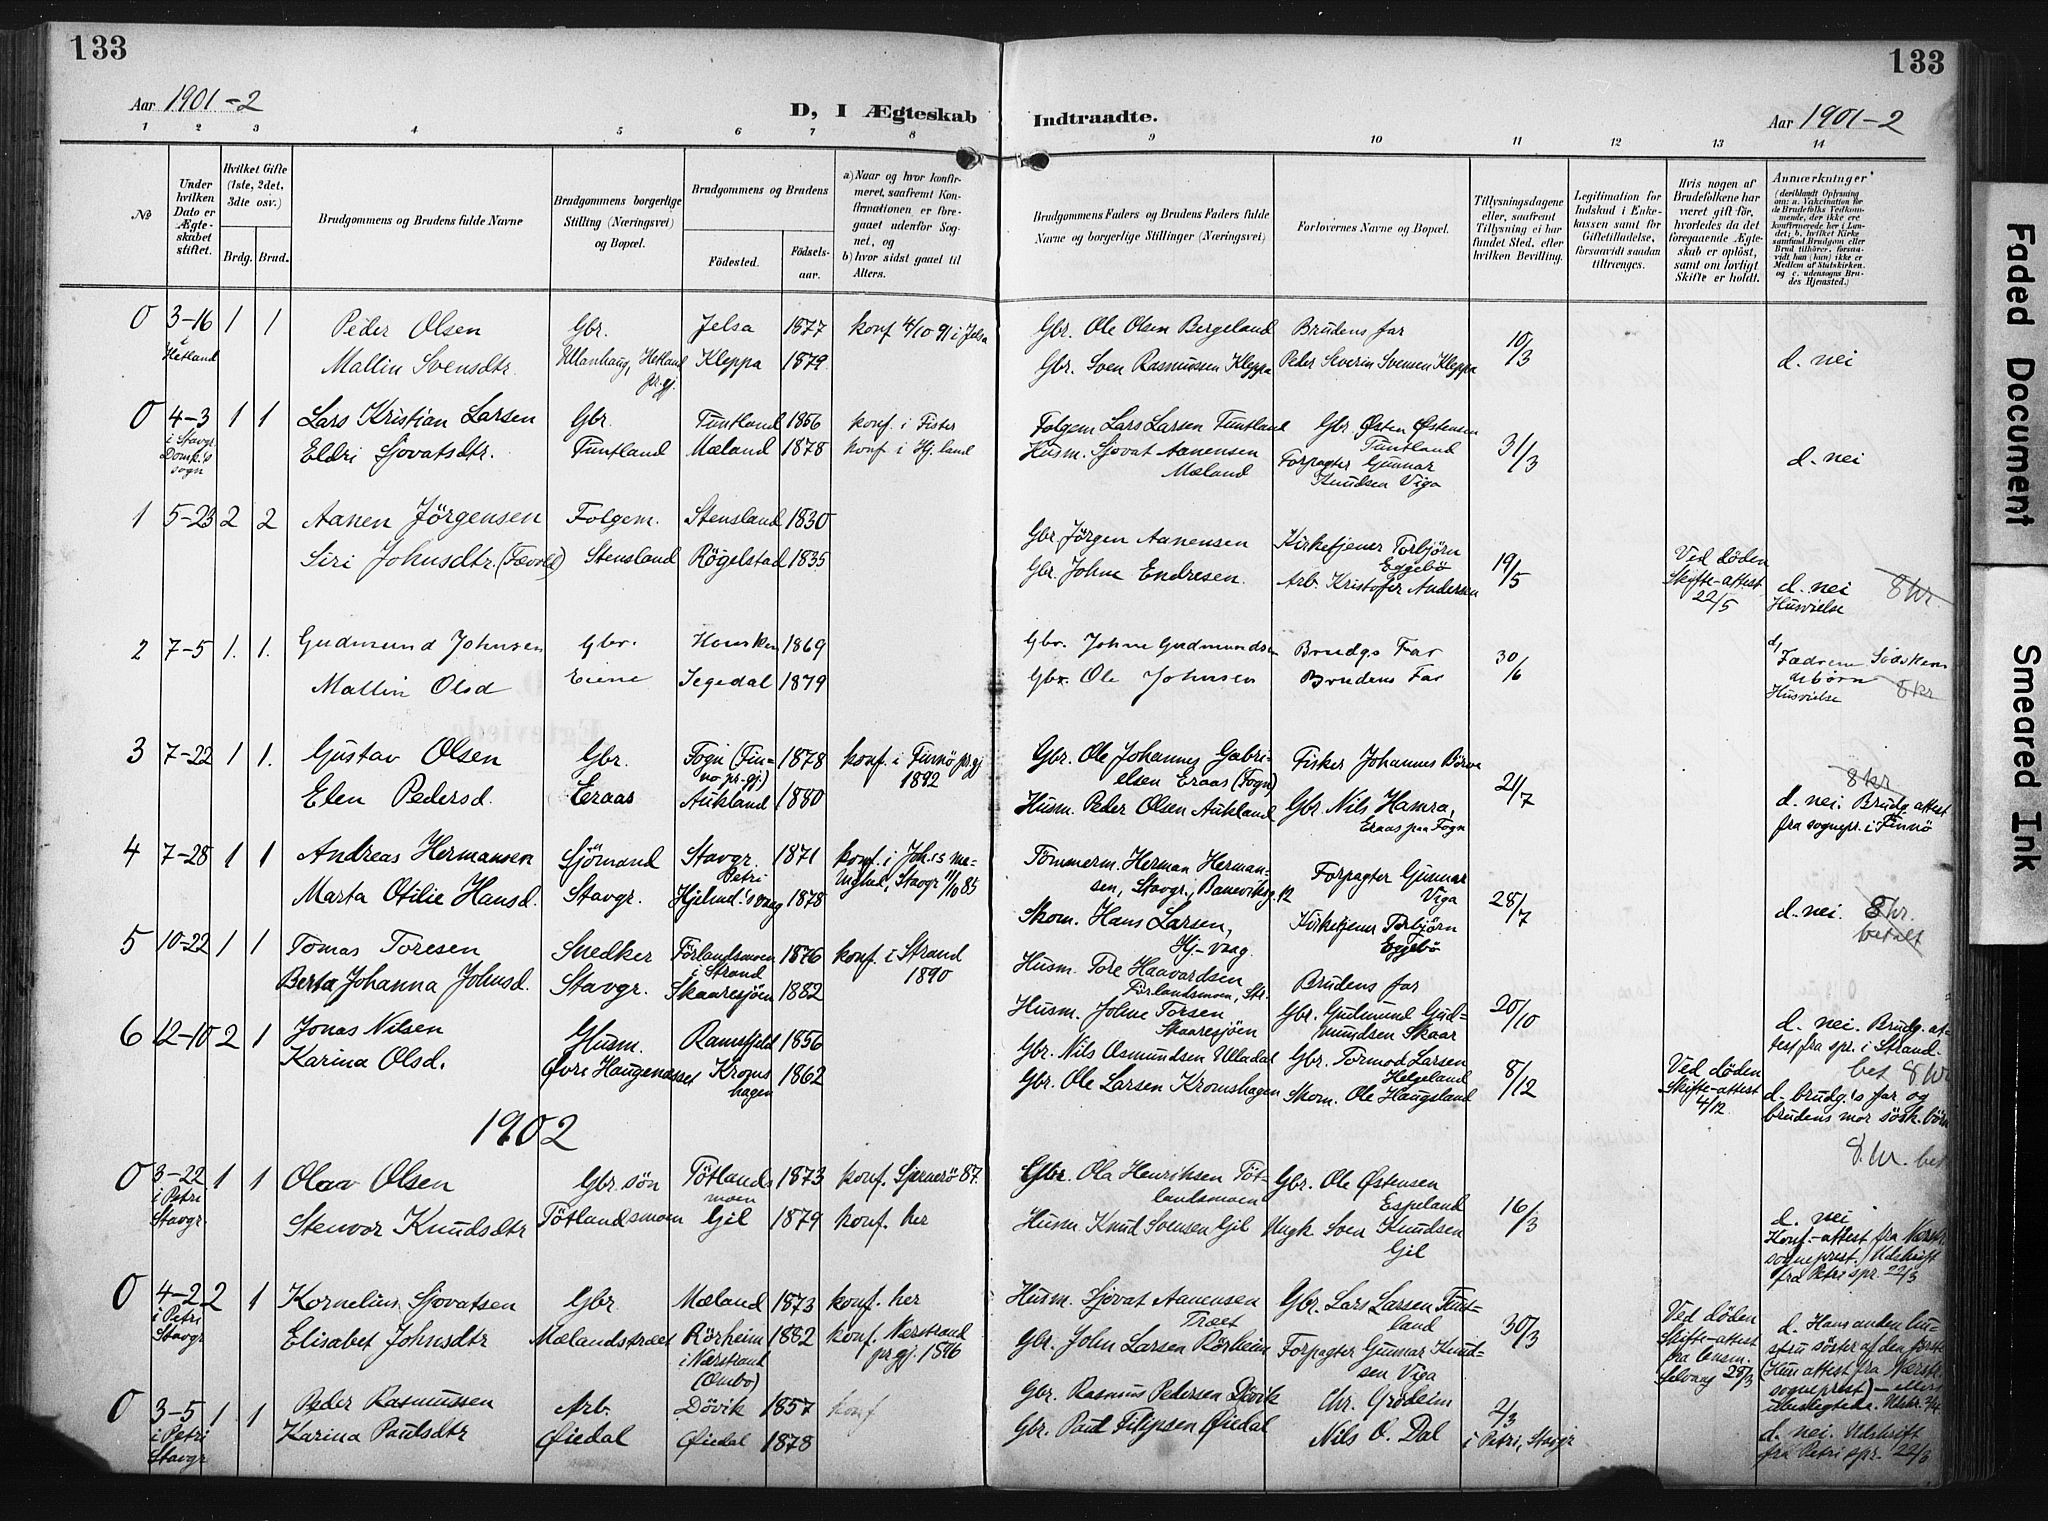 133
133
Aar 1901-2
D, I Ægteskab
Indtraadte.
Aar 1901-2
1 2 3 4 5 6 7 8 9 10 11 12 13 14
№
Under hvilken Dato er Ægteskabet stiftet.
Hvilket Gifte (1ste, 2det, 3die osv.)
Brdg. Brud.
Brudgommens og Brudens fulde Navne
Brudgommens borgerlige Stilling (Næringsvei) og Bopæl.
Brudgommens og Brudens
Fødested.
Fødselsaar.
a) Naar og hvor konfirmeret, saafremt Konfirmationen er foregaaet udenfor Sognet, og
b) hvor sidst gaaet til Alters.
Brudgommens Faders og Brudens Faders fulde Navne og borgerlige Stillinger (Næringsvei)
Forlovernes Navne og Bopæl.
Tillysningsdagene eller, saafremt Tillysning ei har fundet Sted, efter hvilken Bevilling.
Legitimation for Indskud i Enkekassen samt for Giftetilladelse, forsaavidt saadan tiltrænges.
Hvis nogen af Brudefolkene har været gift før, hvorledes da det foregaaende Ægteskab er opløst, samt om lovligt Skifte er holdt.
Anmærkninger (deriblandt Oplysning om: a. Vakcination for de Brudefolks Vedkommende, der ikke ere konfirmerede her i Landet; b. hvilket Kirkesamfund Brudgom eller Brud tilhører, forsaavidt han (hun) ikke er Medlem af Statskirken, og c. udensogns Brudes Hjemsted.)
0 3-16 i Hetland 1 1 Peder Olsen Gbr. Jelsa 1877 konf 4/10 91 i Jelsa Gbr. Ole Olsen Bergeland Brudens far 10/3
Mallin Svensdtr. Ullanhaug, Hetland pr.gj. Kleppa 1879 Gbr. Sven Rasmussen Kleppa Peder Severin Svensen Kleppa d. nei
0 4-3 i Stavgr. Domk.'s sogn 1 1 Lars Kristian Larsen Gbr. Tuntland 1856 konf. i Fister Folgem. Lars Larsen Tuntland Gbr. Østen Østensen Tuntland 31/3
Eldri Sjovatsdtr. Tuntland Mæland 1878 konf i Hj.land Husm. Sjovat Aanensen Mæland Forpagter Gunnar Knudsen Viga d. nei
1 5-23 2 2 Aanen Jörgensen Folgem. Stensland 1830 Gbr Jörgen Aanensen Kirketjener Torbjörn Eggebö 19/5 Ved döden Skifte-attest 22/5
Siri Johnsdtr. (Fævold) Stensland Rögelstad 1835 Gbr. Johne Endresen. Arb. Kristofer Andersen d. nei Husvielse 8 kr.
2 7-5 1. 1. Gudmund Johnsen Gbr. 1869 Gbr. Johne Gudmundsen Brudgs Far 30/6
Mallin Olsd Eiene Tegedal 1879 Gbr. Ole Johnsen Brudens Far d/ Fædrene Södskendebörn Husvielse 8 kr
3 7-22 1 1. Gustav Olsen Gbr. Fogn (Finnö pr.gj) 1878 konf. i Finnö pr.gj 1892 Gbr. Ole Johannes Gabrielsen Eraas (Fogn) Fisker Johannes 21/7
Elen Pedersd. Eraas Aukland 1880 Husm. Peder Olsen Aukland Gbr. Nils Hamra, Eraas paa Fogn 8 kr d. nei. Brudg. attest fra sognepr. i Finnö
4 7-28 1 1 Andreas Hermansen Sjömand Stavgr. Petri 1871 konf. i Joh.'s menighed, Stavgr 11/10 85 Tömmerm. Herman Hermansen, Stavgr, Baneviksg. 12 Forpagter Gunnar Viga 28/7
Marta Otilie Hansd. Stavgr. Hjelmd.'s vaag 1878 Skom. Hans Larsen, Hj.-vaag. Kirketjener Torbjörn Eggebö d. nei. 8 kr. betalt
5 10-22 1 1 Tomas Toresen Snedker Förlandsmoen i Strand 1876 konf. i Strand 1890 Husm. Tore Haavardsen Förlandsmoen, Str. Brudens far 20/10
Berta Johanna Johnsd. Stavgr. Skaaresjöen 1882 Husm. Johne Torsen Skaaresjöen Gbr. Gudmund Gudmundsen Skaar d. nei. Brudg. attest fra spr. i Strand. bet 8 kr
6 12-10 2 1 Jonas Nilsen Husm. Ramsfjeld 1856 Gbr. Nils Osmundsen Ulladal Gbr. Tormod Larsen Helgeland 8/12 Ved döden Skifte-attest 4/12
Karina Olsd. Övre Haugenæsset Kromshagen 1862 Gbr. Ole Larsen Kromshagen Skom. Ole Haugsland d. brudg.'s far og brudens mor sösk.börn
1902
0 3-22 i Petri Stavgr. 1 1 Olav Olsen Gbr.sön Tötlandsmoen 1873 konf. Sjernerö 87. Gbr. Ola Henriksen Tötlandsmoen Gbr. Ole Østensen Espeland 16/3 8 kr. bet
Stenvor Knudsdtr Tötlandsmoen Gil 1879 konf. her Husm. Knud Svensen Gil Ungk. Sven Knudsen Gil d. nei Konf.-attest fra Nærstr. sogneprest. Udskrift fra Petri spr. 22/3
0 4-2 i Petri Stavgr 2 1 Kornelius Sjovatsen Gbr. Mæland 1873 konf. her Husm. Sjovat Aanensen Træet Gbr. Lars Larsen Tuntland 30/3 Ved döden Skifte-attest fra lensm. 25/3
Elisabet Johnsdtr Mælandstræet Rörheim i Nærstrand (Ombo) 1882 konf. Nærstrand pr.gj. 1896 Gbr. John Larsen Rörheim Forpagter Gunnar Knudsen Viga d. Hans anden hustru söster af den förste (Hun attest fra Nærstr. sogneprest)
0 3-5 i Petri Stavgr 1 1 Peder Rasmussen Arb. Dövik 1857 konf Gbr. Rasmus Pedersen Dövik Chr. Grödeim 2/3
Karina Paulsdtr Øiedal Øiedal 1878 Gbr. Paul Filipsen Øiedal Nils O. Dal i Petri, Stavgr d. nei. Udskrift fra Petri spr. 22/3
Faded Document
Smeared Ink